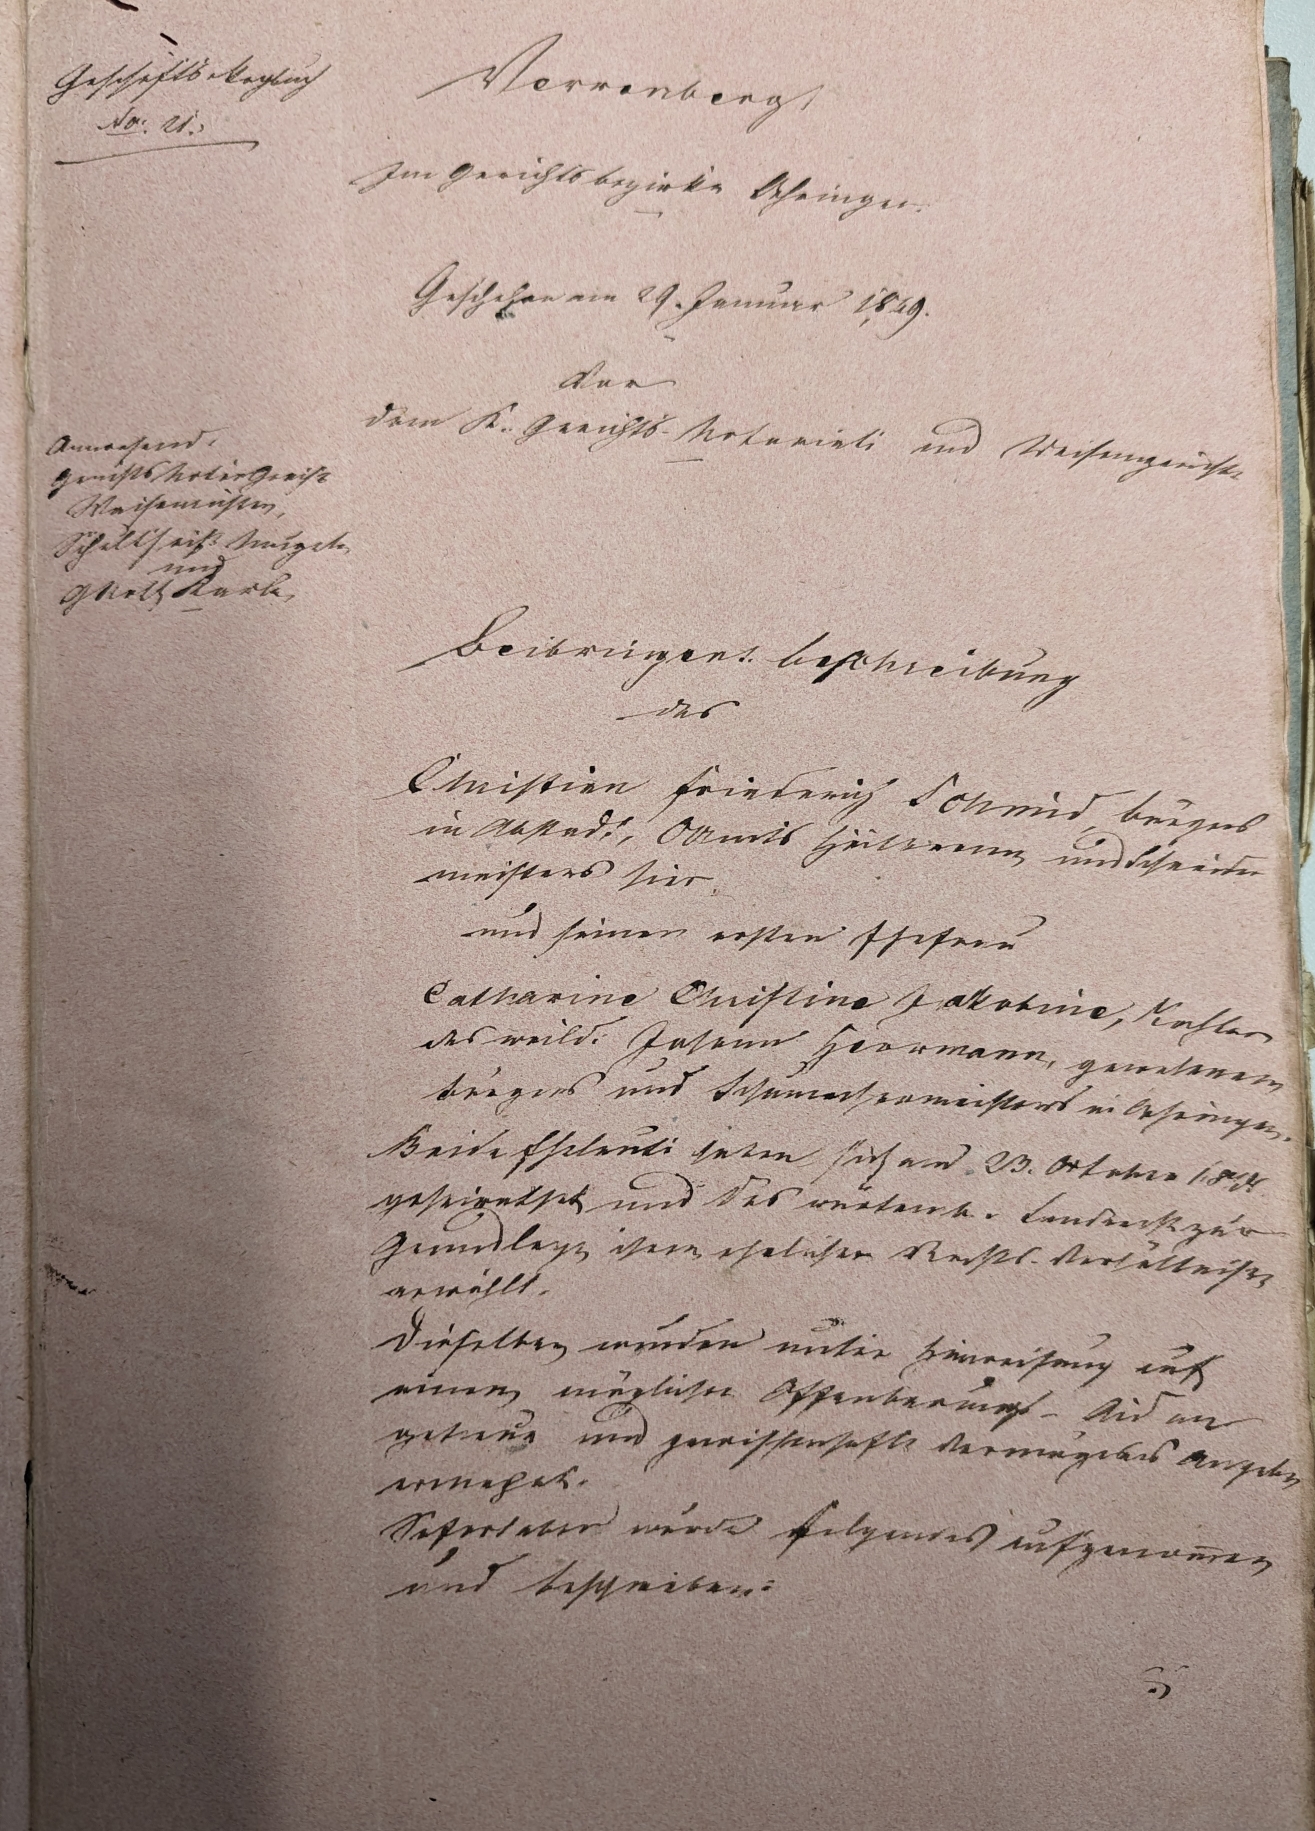 Geschäfts
No. 21.
Verrenberg,
Im Gerichtsbezirke Oehringen.
Geschehen am 29. Januar 1849.
Vor
dem K. Gerichts-Notariate und Waisengericht
Anwesend:
Gerichts Notar
Waisenrichter,
Schultheiß
und
Karle,
Beibringens beschreibung
des
Christian Friederich Schmid, bürgers
in Abstadt, OAmts Heilbronn und Schneider
meisters hier
und seiner ersten Ehefrau
Catharine Christine Jakobine, Tochter
des weild. Johann Herrmann, gewesenen
bürgers und Schumachermeisters in Oehringen.
Beide Eheleute haben sich am 23. October
geheirathet und das würtemb. Landrecht zur
Grundlage ihrer ehelichen Rechts-Verhältnisse
erwählt.
Dieselben wurden unter Hinweisung auf
einen möglichen Offenbarungs-Eid an
getreue und gewissenhafte Vermögens Angaben
ermahnt.
Sofort aber wurde Folgendes aufgenomen
und beschrieben: